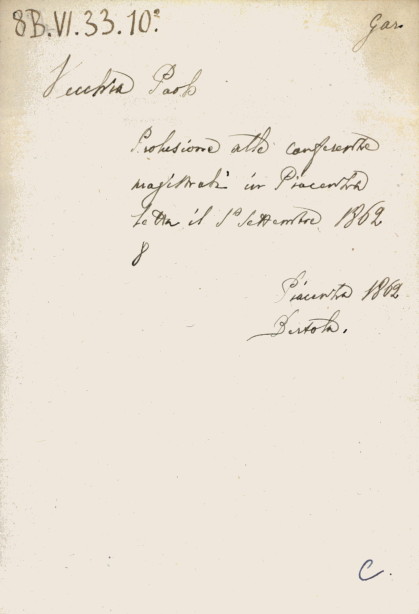 8B.VI.33.10.º
Gar.
Vecchia Paolo
Prolusione alle conferenze
magistrali in Piacenza
letta il 1º Settembre 1862
8
Piacenza 1862.
Bertola.
C.